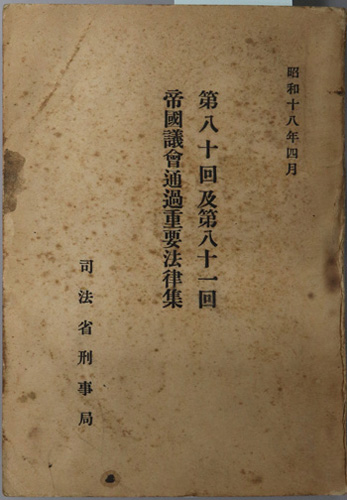 昭和十八年四月
第八十回及第八十一回
帝國議會通過重要法律集
司法省刑事局